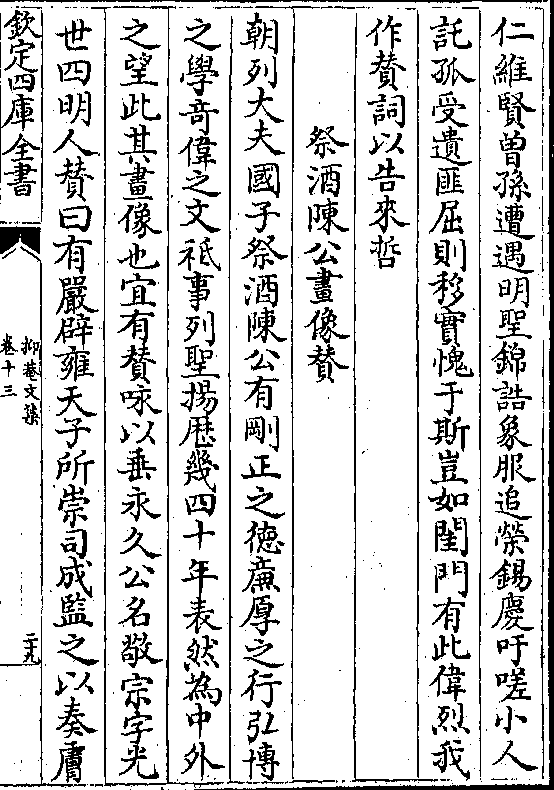 仁維賢曽孫遭遇明聖錦誥象服追榮錫慶吁嗟小人
託孤受遺匪屈則移實愧于斯豈如閨門有此偉烈我
作賛詞以告來哲
祭酒陳公畫像賛
朝列大夫國子祭酒陳公有剛正之徳亷厚之行弘博
之學竒偉之文祗事列聖揚歴幾四十年表然為中外
之望此其畫像也宜有賛咏以垂永久公名敬宗字光
世四明人賛曰有嚴辟雍天子所崇司成監之以奏膚
欽定四庫全書
抑菴文集
卷十三
二九